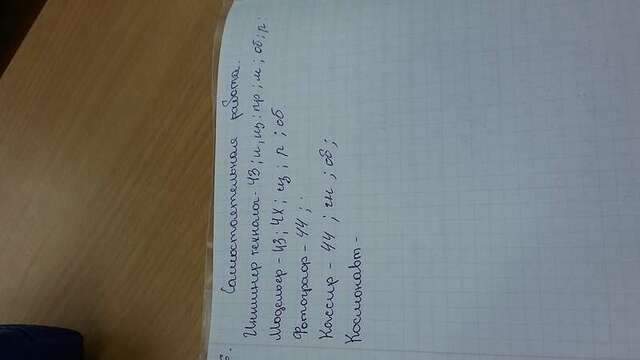 Самостоятельная работа.
Инженер технолог - ЧЗ; и, из; пр; м; об; р.
Модельер - ЧЗ; ЧХ; из; р; об
Фотограф - ЧЧ;
Кассир - ЧЧ; гн; об;
Космонавт -